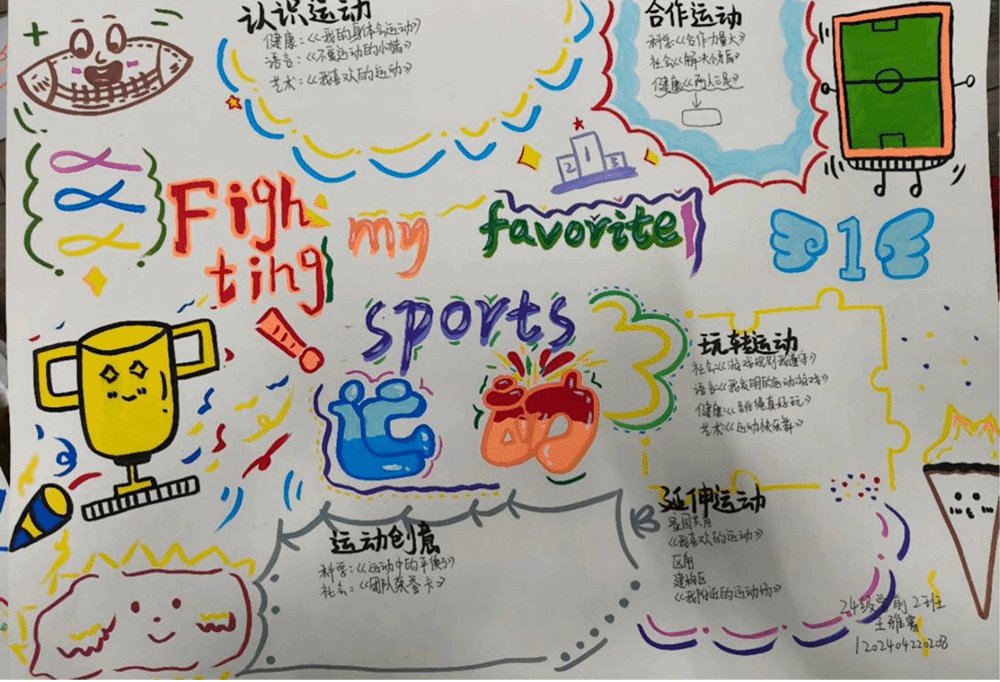 认识运动
健康:《我的身体会运动》
语言:《不爱运动的小猫》
艺术:《我喜欢的运动》
合作运动
科学《合作力量大》
社会《解决小矛盾》
健康《两人三足》
2 1 3
Figh
ting!
my
favorite
sports
1
3
运动
玩转运动
社会《游戏规则我遵守》
语言《我发明的运动游戏》
健康:《跳绳真好玩》
艺术《运动快乐舞》
运动创意
科学:《运动中的平衡》
社会:《团队荣誉卡》
延伸运动
家园共育
《我喜欢的运动》
区角
建构区
《我附近的运动场》
24级学前2班
120240422020B